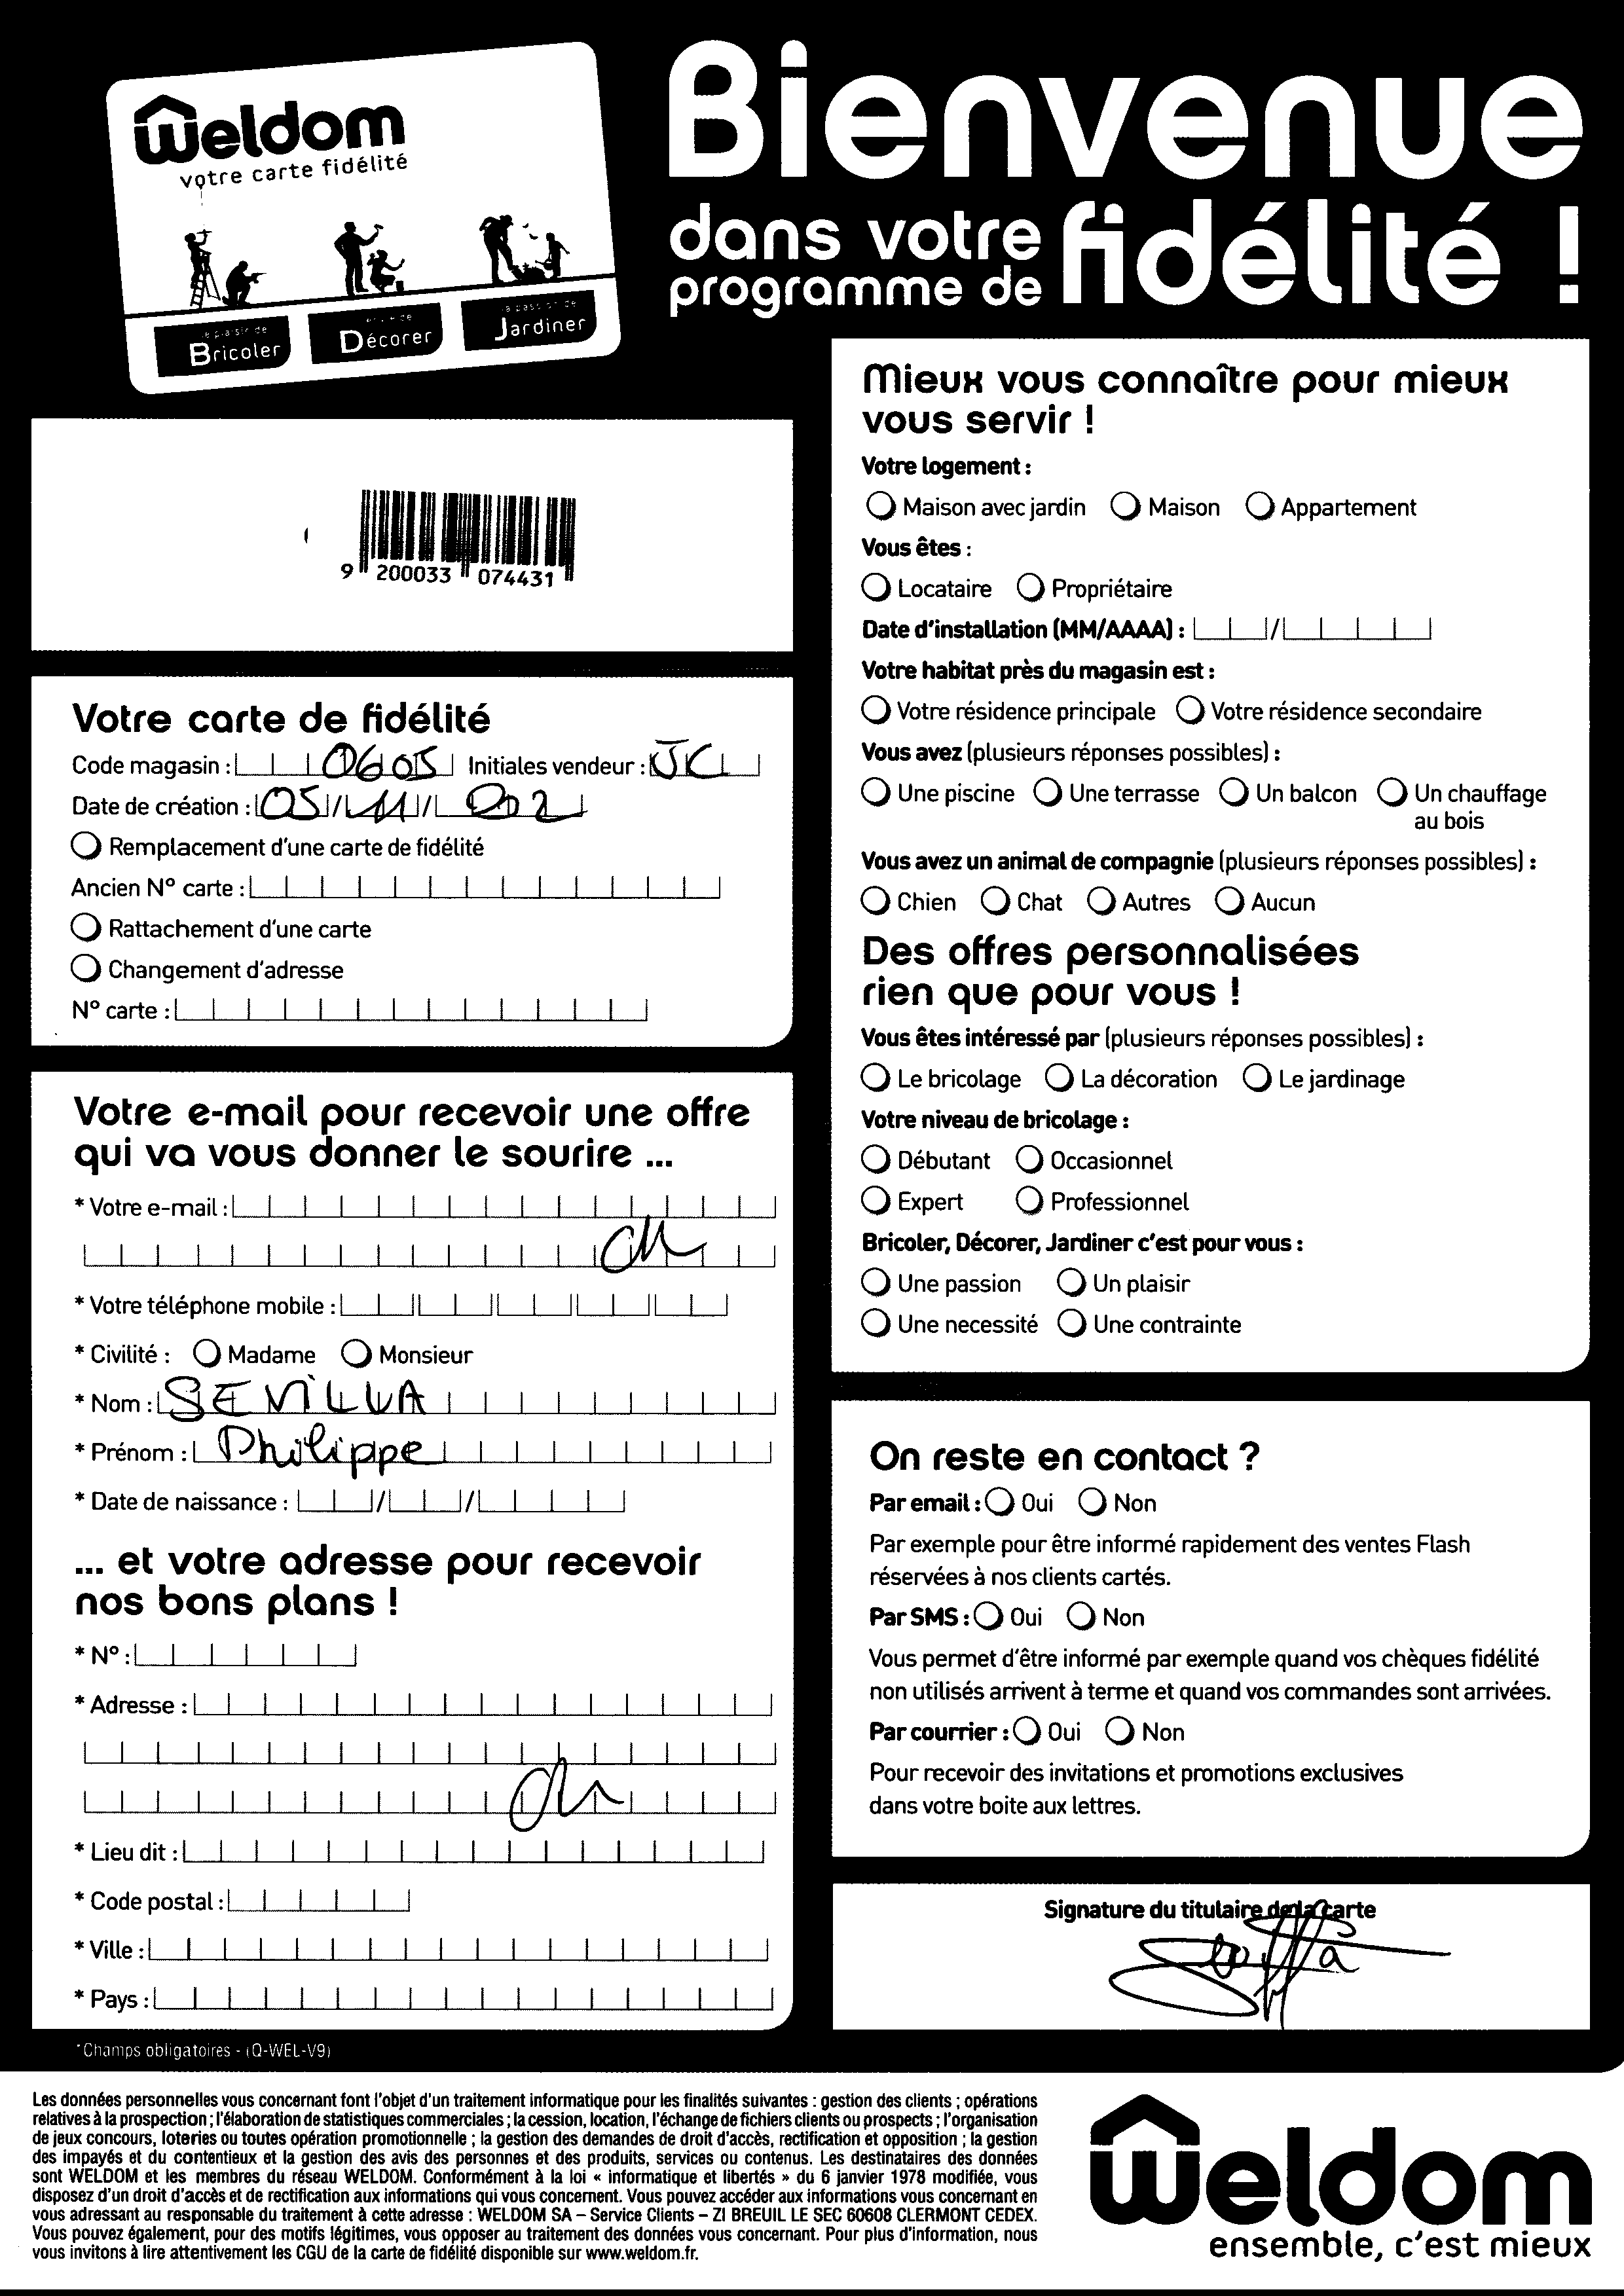 Weldom
votre carte fidélité
Bienvenue
dans votre
programme de fidélité !
le plaisir de
Bricoler
Décorer
la passion de
Jardiner
9 200033 074431
Votre carte de fidélité
Code magasin : 0605 Initiales vendeur : JC
Date de création : 05/11/
Remplacement d'une carte de fidélité
Ancien N° carte :
Rattachement d'une carte
Changement d'adresse
N° carte :
Votre e-mail pour recevoir une offre
qui va vous donner le sourire ...
* Votre e-mail :
* Votre téléphone mobile :
* Civilité : Madame Monsieur
* Nom : SEVILLA
* Prénom : Philippe
* Date de naissance : / /
... et votre adresse pour recevoir
nos bons plans !
* N° :
* Adresse :
* Lieu dit :
* Code postal :
* Ville :
* Pays :
*Champs obligatoires - (Q-WEL-V9)
Mieux vous connaître pour mieux
vous servir !
Votre logement :
Maison avec jardin Maison Appartement
Vous êtes :
Locataire Propriétaire
Date d'installation (MM/AAAA) : /
Votre habitat près du magasin est :
Votre résidence principale Votre résidence secondaire
Vous avez (plusieurs réponses possibles) :
Une piscine Une terrasse Un balcon Un chauffage
au bois
Vous avez un animal de compagnie (plusieurs réponses possibles) :
Chien Chat Autres Aucun
Des offres personnalisées
rien que pour vous !
Vous êtes intéressé par (plusieurs réponses possibles) :
Le bricolage La décoration Le jardinage
Votre niveau de bricolage :
Débutant Occasionnel
Expert Professionnel
Bricoler, Décorer, Jardiner c'est pour vous :
Une passion Un plaisir
Une necessité Une contrainte
On reste en contact ?
Par email : Oui Non
Par exemple pour être informé rapidement des ventes Flash
réservées à nos clients cartés.
Par SMS : Oui Non
Vous permet d'être informé par exemple quand vos chèques fidélité
non utilisés arrivent à terme et quand vos commandes sont arrivées.
Par courrier : Oui Non
Pour recevoir des invitations et promotions exclusives
dans votre boite aux lettres.
Signature du titulaire de la carte
Les données personnelles vous concernant font l'objet d'un traitement informatique pour les finalités suivantes : gestion des clients ; opérations
relatives à la prospection ; l'élaboration de statistiques commerciales ; la cession, location, l'échange de fichiers clients ou prospects ; l'organisation
de jeux concours, loteries ou toutes opération promotionnelle ; la gestion des demandes de droit d'accès, rectification et opposition ; la gestion
des impayés et du contentieux et la gestion des avis des personnes et des produits, services ou contenus. Les destinataires des données
sont WELDOM et les membres du réseau WELDOM. Conformément à la loi « informatique et libertés » du 6 janvier 1978 modifiée, vous
disposez d'un droit d'accès et de rectification aux informations qui vous concernent. Vous pouvez accéder aux informations vous concernant en
vous adressant au responsable du traitement à cette adresse : WELDOM SA – Service Clients – ZI BREUIL LE SEC 60608 CLERMONT CEDEX.
Vous pouvez également, pour des motifs légitimes, vous opposer au traitement des données vous concernant. Pour plus d'information, nous
vous invitons à lire attentivement les CGU de la carte de fidélité disponible sur www.weldom.fr.
Weldom
ensemble, c'est mieux